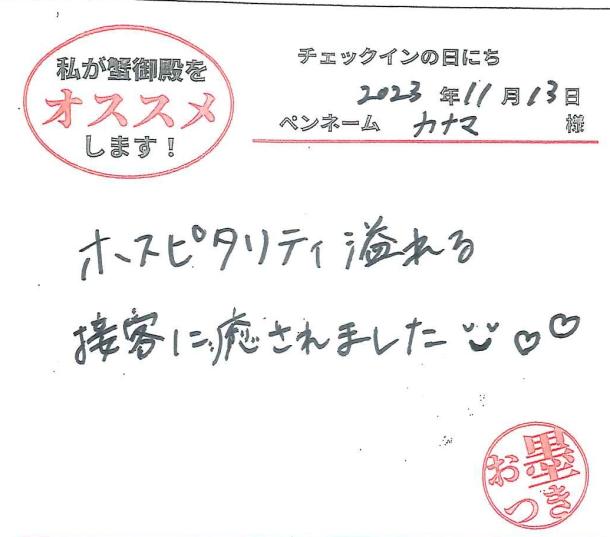 私が蟹御殿を
オススメ
します!
チェックインの日にち
2023年11月13日
ペンネーム カナマ 様
ホスピタリティ溢れる
接客に癒されました
お墨
つき